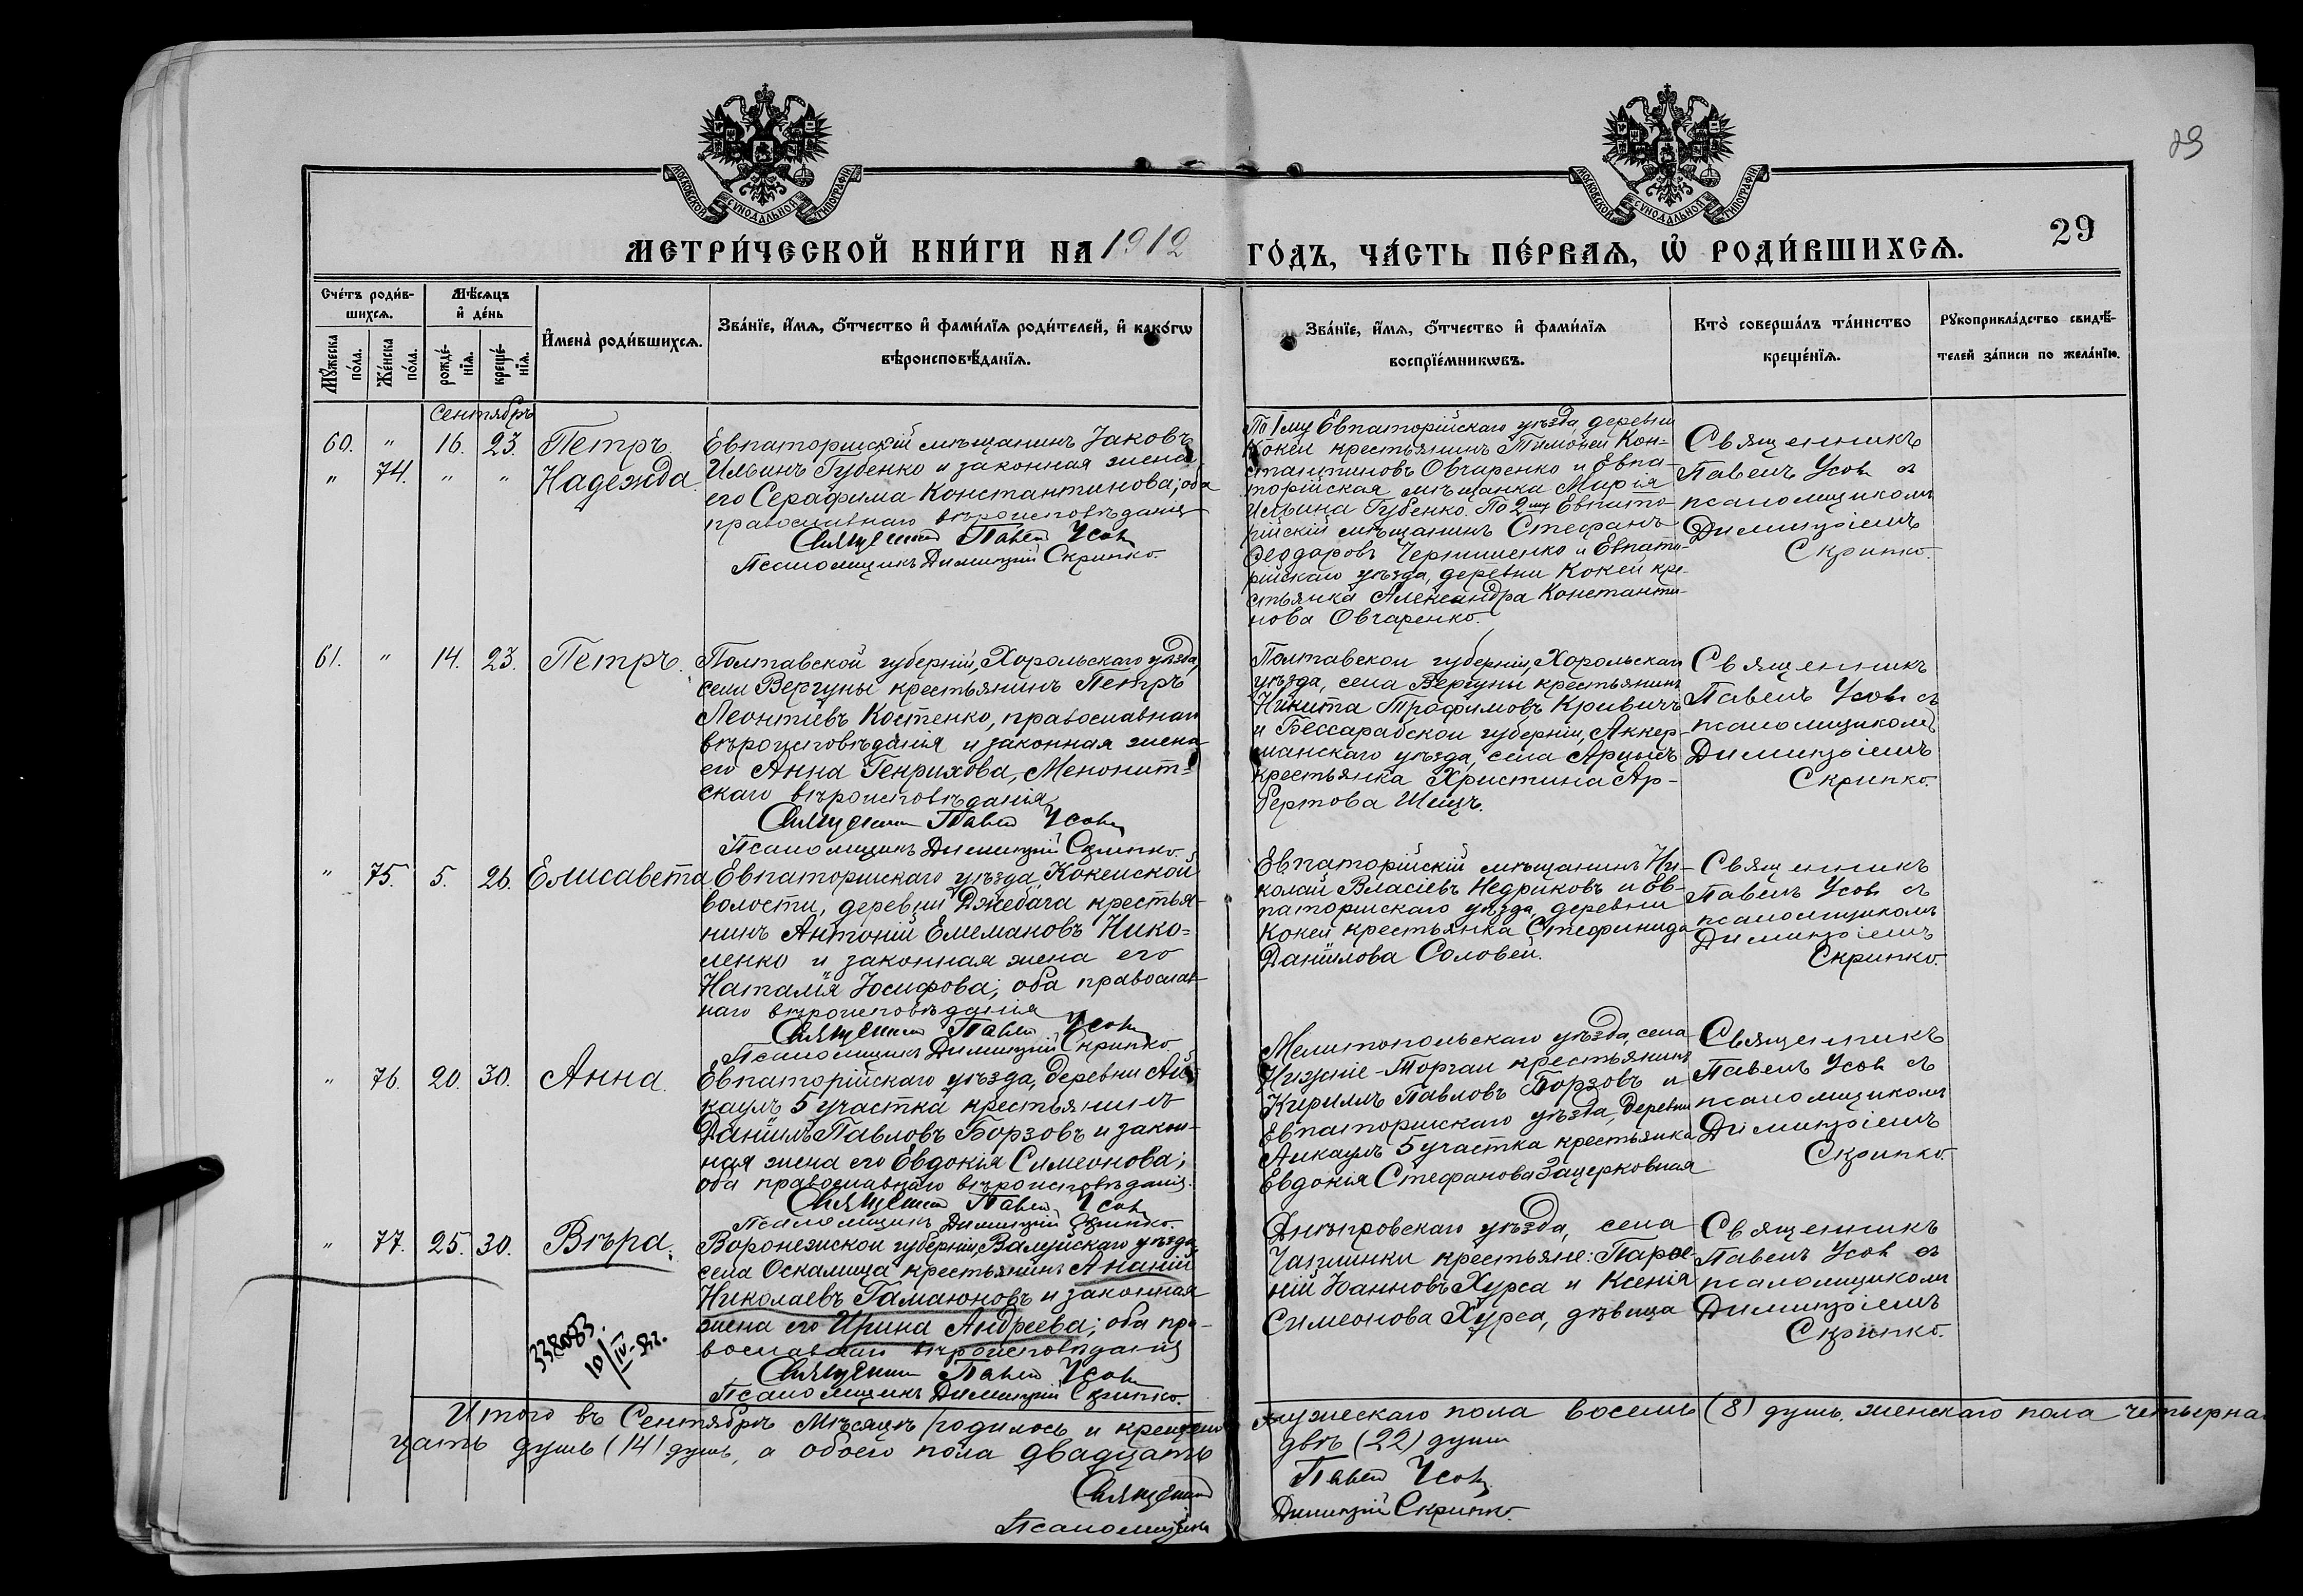 МОСКОВСКОЙ СѴНОДАЛЬНОЙ ТИПОГРАФІИ
МОСКОВСКОЙ СѴНОДАЛЬНОЙ ТИПОГРАФІИ
29
29
МЕТРИ́ЧЕСКОЙ КНИ́ГИ НА 1912
ГО́ДЪ, ЧА́СТЬ ПЕ́РВАѦ, Ѽ РОДИ́ВШИХСѦ.
Сче́тъ роди́в-
шихсѧ.
Мѣ́сѧцъ
и҆ де́нь
Мꙋ́жеска
по́ла.
Же́нска
по́ла.
рожде́-
нїѧ.
креще́-
нїѧ.
И҆мена̀ роди́вшихсѧ.
Зва́нїе, и҆́мѧ, ѻ҆́тчество и҆ фами́лїѧ роди́телей, и҆ како́гѡ
вѣроисповѣ́данїѧ.
Зва́нїе, и҆́мѧ, ѻ҆́тчество и҆ фами́лїѧ
воспрїе́мникѡвъ.
Кто̀ соверша́лъ та́инство
креще́нїѧ.
Рꙋкоприкла́дство свидѣ́-
телей за́писи по жела́нїю.
Сентябрь
60. " 16. 23. Петръ.
" 74. " " Надежда.
Евпаторійскій мѣщанинъ Іаковъ
Ильинъ Губенко и законная жена
его Серафима Константинова; оба
православнаго вѣроисповѣданія
Священникъ Павелъ Усовъ
Псаломщикъ Димитрій Скрипко.
По 1му Евпаторійскаго уѣзда, деревни
Кокеи крестьянинъ Тимоѳей Кон-
стантиновъ Овчаренко и Евпа-
торійская мѣщанка Марія
Ильина Губенко. По 2му Евпато-
рійскій мѣщанинъ Стефанъ
Ѳеодоровъ Чернышенко и Евпато-
рійскаго уѣзда, деревни Кокеи кре-
стьянка Александра Константи-
нова Овчаренко.
Священникъ
Павелъ Усовъ съ
псаломщикомъ
Димитріемъ
Скрипко.
61. " 14. 23. Петръ.
Полтавской губерніи, Хорольскаго уѣзда,
села Вергуны крестьянинъ Петръ
Леонтіевъ Костенко, православнаго
вѣроисповѣданія и законная жена
его Анна Генрихова, Менонит-
скаго вѣроисповѣданія
Священникъ Павелъ Усовъ
Псаломщикъ Димитрій Скрипко.
Полтавской губерніи, Хорольскаго
уѣзда, села Вергуны крестьянинъ
Никита Трофимовъ Кривичъ
и Бессарабской губерніи, Аккер-
манскаго уѣзда, села Арцызъ
крестьянка Христина Ар-
бертова Шицъ.
Священникъ
Павелъ Усовъ съ
псаломщикомъ
Димитріемъ
Скрипко.
" 75. 5. 26. Елисавета
Евпаторійскаго уѣзда, Кокейской
волости, деревни Джебага крестья-
нинъ Антоній Емемановъ Нико-
ленко и законная жена его
Наталія Іосифова; оба православ-
наго вѣроисповѣданія
Священникъ Павелъ Усовъ
Псаломщикъ Димитрій Скрипко
Евпаторійскій мѣщанинъ Ни-
колай Власіевъ Недриковъ и Ев-
паторійскаго уѣзда, деревни
Кокеи крестьянка Стефанида
Даніилова Соловей.
Священникъ
Павелъ Усовъ съ
псаломщикомъ
Димитріемъ
Скрипко.
" 76. 20. 30. Анна.
Евпаторійскаго уѣзда, деревни Ай-
каулъ 5 участка крестьянинъ
Даніилъ Павловъ Борзовъ и закон-
ная жена его Евдокія Симеонова;
оба православнаго вѣроисповѣданія.
Священникъ Павелъ Усовъ
Псаломщикъ Димитрій Скрипко.
Мелитопольскаго уѣзда, села
Нижніе-Торгаи крестьянинъ
Кириллъ Павловъ Борзовъ и
Евпаторійскаго уѣзда, деревни
Айкаулъ 5 участка крестьянка
Евдокія Стефанова Зацерковная
Священникъ
Павелъ Усовъ съ
псаломщикомъ
Димитріемъ
Скрипко.
" 77. 25. 30. Вѣра.
Воронежской губерніи, Валуйскаго уѣзда,
села Оскалища крестьянинъ Ананій
Николаевъ Гамаюновъ и законная
жена его Ирина Андреева; оба пра-
вославнаго вѣроисповѣданія
Священникъ Павелъ Усовъ
Псаломщикъ Димитрій Скрипко.
Днѣпровскаго уѣзда, села
Чаплинки крестьяне: Парѳе-
ній Іоанновъ Хурса и Ксенія
Симеонова Хурса, дѣвица
Священникъ
Павелъ Усовъ съ
псаломщикомъ
Димитріемъ
Скрипко.
338083.
10/IV-
Итого въ Сентябрѣ мѣсяцѣ родилось и крещено мужескаго пола восемь (8) душъ, женскаго пола четырна-
цать душъ (14) душъ, а обоего пола двадцать двѣ (22) души
Священникъ Павелъ Усовъ
Псаломщикъ Димитрій Скрипко.